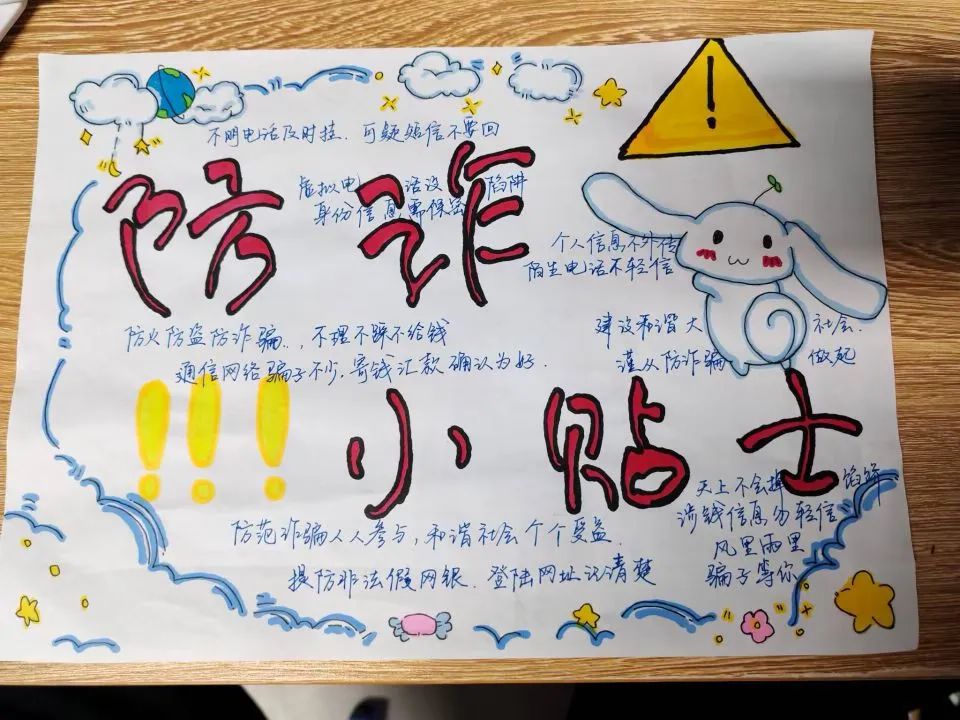 不明电话及时挂，可疑短信不要回
虚拟电话设陷阱
身份信息需保密
防诈
个人信息不外传
陌生电话不轻信
防火防盗防诈骗..，不理不踩不给钱
通信网络骗子不少，寄钱汇款确认为好．
建设和谐大社会．
谨从防诈骗做起
!!!小贴士
天上不会掉馅饼
涉钱信息勿轻信
风里雨里
骗子等你
防范诈骗人人参与，和谐社会个个受益．
提防非法假网银．登陆网址认清楚